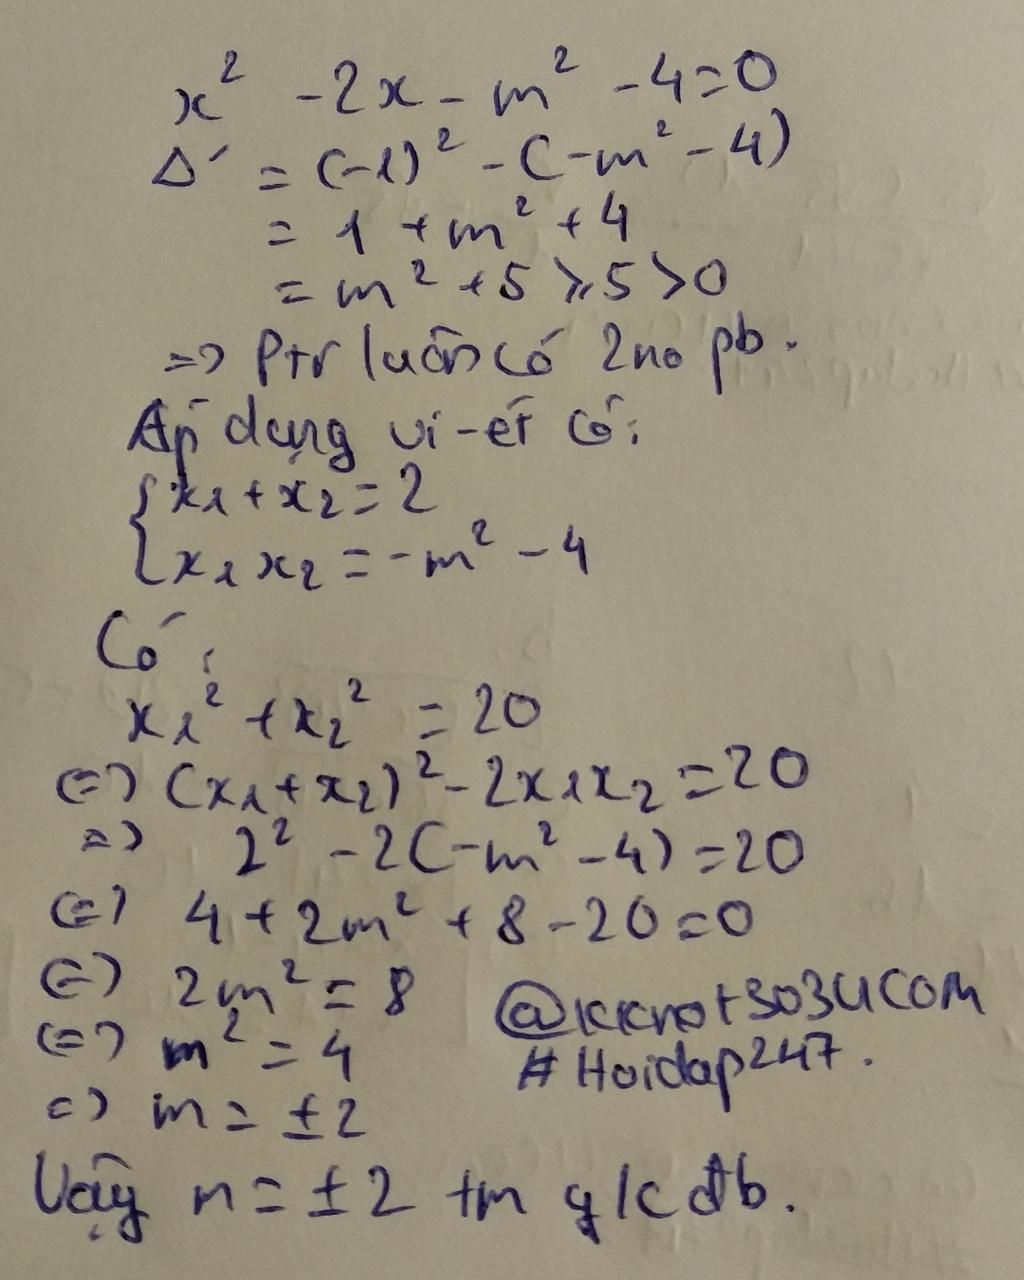 x² - 2x - m² - 4 = 0
Δ' = (-1)² - (-m² - 4)
= 1 + m² + 4
= m² + 5 ≥ 5 > 0
=> Ptr luôn có 2 no pb.
Áp dụng vi-ét có:
{ x1 + x2 = 2
x1 x2 = -m² - 4
Có:
x1² + x2² = 20
<=> (x1 + x2)² - 2x1x2 = 20
=> 2² - 2(-m² - 4) = 20
<=> 4 + 2m² + 8 - 20 = 0
<=> 2m² = 8
<=> m² = 4
=> m = ±2
@kknot3034COM
#Hoidap247.
Vậy m = ±2 tm y/c đb.